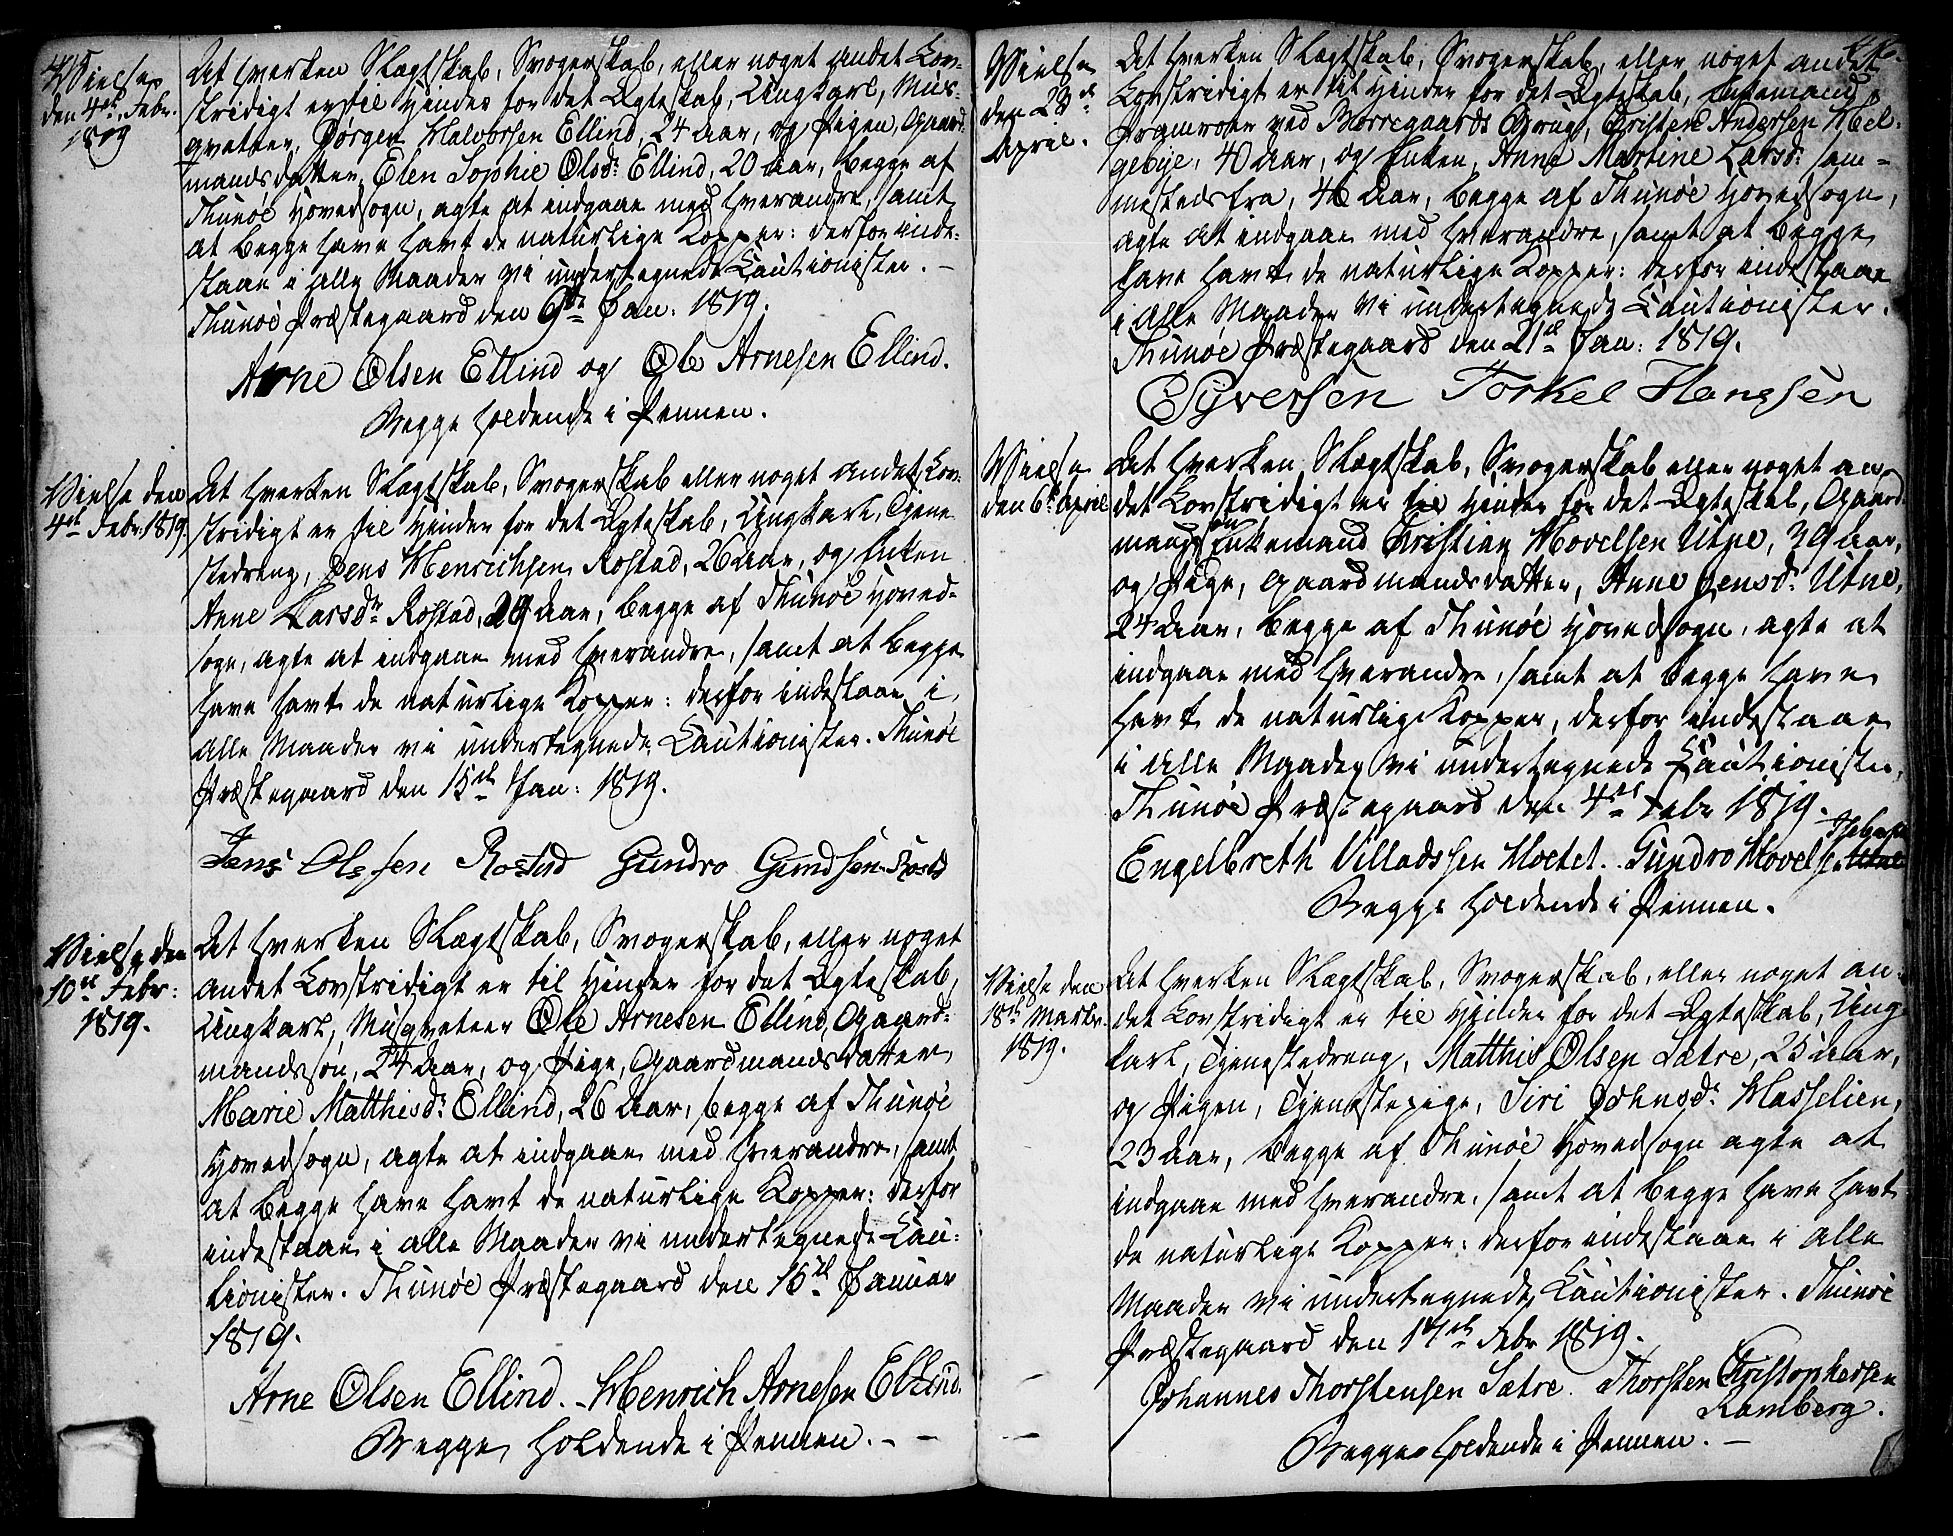 Vielse
den 4de Febr.
1819
At hverken Slægtskab, Svogerskab, eller noget andet Lov-
stridigt er til Hinder for det Ægteskab, Ungkarl, Mus-
qveteer, Jørgen Halvorsen Ellind, 24 Aar, og Pigen, Gaard-
mandsdatter, Elen Sophie Olsdr. Ellind, 20 Aar, begge af
Thunøe Hovedsogn, agte at indgaae med hverandre, samt
at begge have havt de naturlige Kopper: derfor inde-
staae i alle Maader vi undertegnede Cautionister. –
Thunøe Præstegaard den 9de Jan: 1819.
Arne Olsen Ellind og Ole Arnesen Ellind.
Begge holdende i Pennen.
Vielse den
4de Febr. 1819.
At hverken Slægtskab, Svogerskab eller noget andet Lov-
stridigt er til Hinder for det Ægteskab, Ungkarl, Tjene-
stedreng, Jens Henrichsen Rostad, 26 Aar, og Enken
Anne Larsdr. Rostad, 29 Aar, begge af Thunøe Hoved-
sogn, agte at indgaae med hverandre, samt at begge
have havt de naturlige Kopper: derfor indestaae i
alle Maader vi undertegnede Cautionister. Thunøe
Præstegaard den 15de Jan: 1819.
Jens Olssen Rostad Gundro Gundsen Rostd
Vielse den
10de Febr:
1819.
At hverken Slægtskab, Svogerskab, eller noget
andet Lovstridigt er til Hinder for det Ægteskab,
Ungkarl, Musqveteer Ole Arnesen Ellind, Gaard-
mandssøn, 24 Aar, og Pige, Gaardmandsdatter
Marie Matthisdr. Ellind, 26 Aar, begge af Thunøe
Hovedsogn, agte at indgaae med hverandre, samt
at begge have havt de naturlige Kopper: derfor
indestaae i alle Maader vi undertegnede Cau-
tionister. Thunøe Præstegaard den 16de Januar
1819.
Arne Olsen Ellind. Henrich Arnesen Ellind.
Begge holdende i Pennen. –
Vielse
den 28de
April.
At hverken Slægtskab, Svogerskab, eller noget andet
Lovstridigt er til Hinder for det Ægteskab, Enkemand
ved Borregaards Brug, Christen Andersen Hel-
gebye, 40 Aar, og Enken, Anne Martine Larsdr. sam-
mestedsfra, 46 Aar, begge af Thunøe Hovedsogn,
agte at indgaae med hverandre, samt at begge
have havt de naturlige Kopper: derfor indestaae
i alle Maader vi undertegnede Cautionister.
Thunøe Præstegaard den 21de Jan: 1819.
E Syversen Torkel Hansen
Vielse
den 6te April
At hverken Slægtskab, Svogerskab eller noget an-
det Lovstridigt er til Hinder for det Ægteskab, Gaard-
mand Enkemand Christian Hovelsen Utne, 39 Aar,
og Pige, Gaardmandsdatter, Anne Jensdr. Utne,
24 Aar, begge af Thunøe Hovedsogn, agte at
indgaae med hverandre, samt at begge have
havt de naturlige Kopper, derfor indestaae
i alle Maader vi undertegnede Cautionister,
Thunøe Præstegaard den 4de Febr 1819.
Engelbreth Villadssen Moetet. Gundro Hovelse
Begge holdende i Pennen.
Vielse den
18de Marts
1819.
At hverken Slægtskab, Svogerskab, eller noget an-
det Lovstridigt er til Hinder for det Ægteskab, Ung-
karl, Tjenestedreng, Matthis Olsen Sætre, 25 Aar,
og Pigen, Tjenestepige, Siri Johnsdr. Hasselien,
23 Aar, begge af Thunøe Hovedsogn agte at
indgaae med hverandre, samt at begge have havt
de naturlige Kopper: derfor indestaae i alle
Maader vi undertegnede Cautionister. Thunøe
Præstegaard den 17de Febr 1819.
Johannes Thorstensen Sætre. Thorsten Christophersen
Ramberg.
Begge holdende i Pennen. –